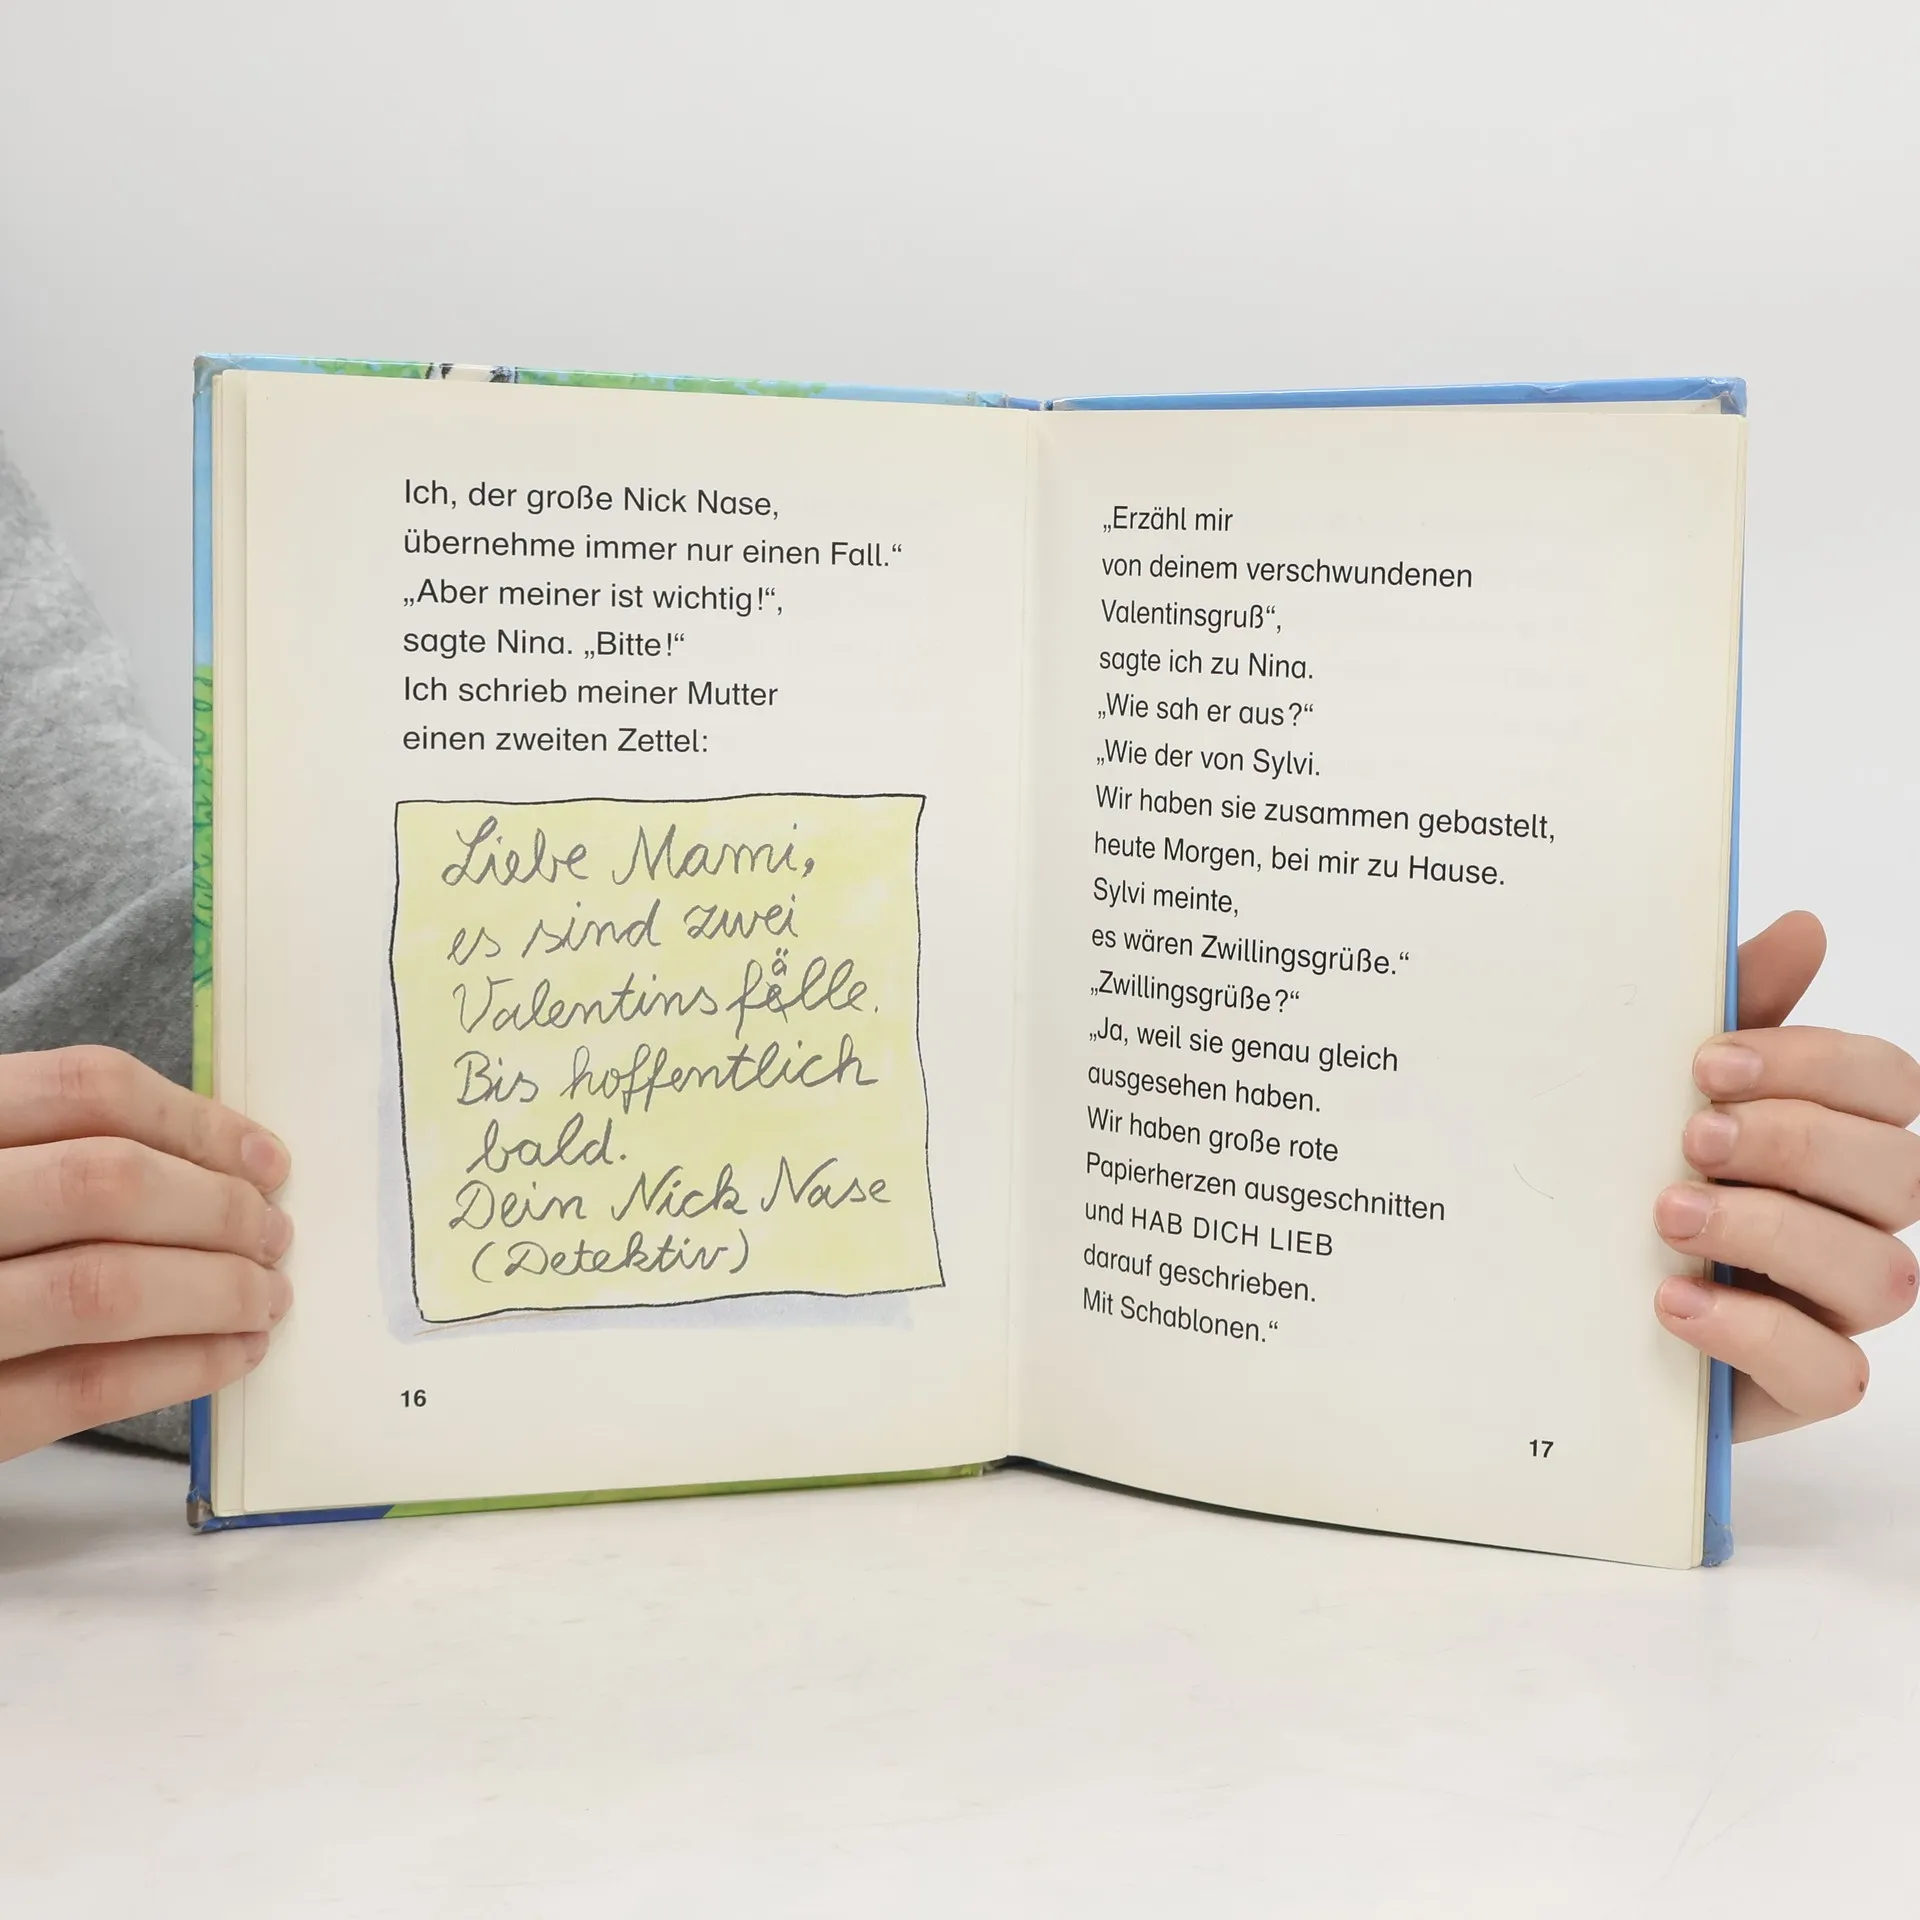 Ich, der große Nick Nase,
übernehme immer nur einen Fall.“
„Aber meiner ist wichtig!“,
sagte Nina. „Bitte!“
Ich schrieb meiner Mutter
einen zweiten Zettel:
Liebe Mami,
es sind zwei
Valentinsfälle.
Bis hoffentlich
bald.
Dein Nick Nase
(Detektiv)
16
„Erzähl mir
von deinem verschwundenen
Valentinsgruß“,
sagte ich zu Nina.
„Wie sah er aus?“
„Wie der von Sylvi.
Wir haben sie zusammen gebastelt,
heute Morgen, bei mir zu Hause.
Sylvi meinte,
es wären Zwillingsgrüße.“
„Zwillingsgrüße?“
„Ja, weil sie genau gleich
ausgesehen haben.
Wir haben große rote
Papierherzen ausgeschnitten
und HAB DICH LIEB
darauf geschrieben.
Mit Schablonen.“
17